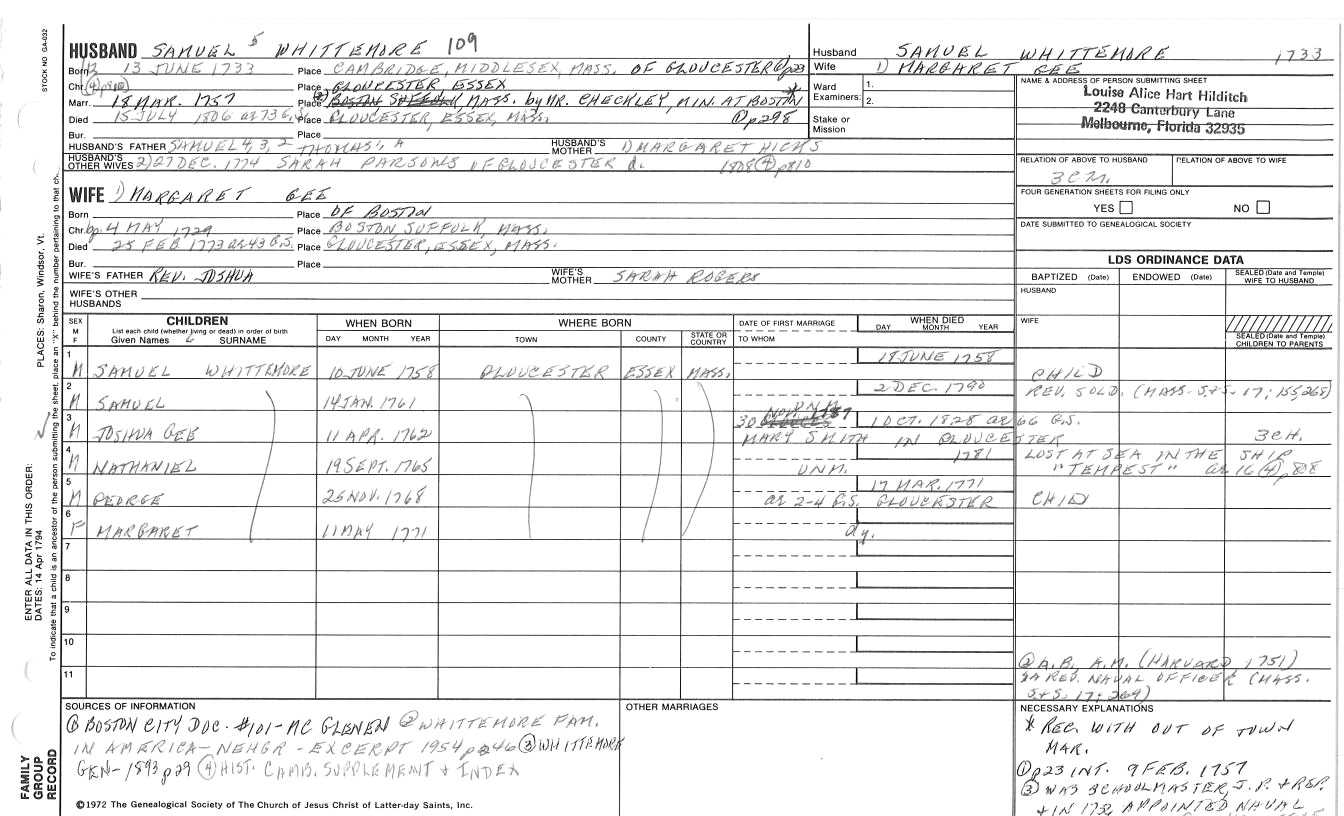 STOCK NO GA-032
HUSBAND SAMUEL 5 WHITTEMORE 109
Born 13 JUNE 1733 Place CAMBRIDGE, MIDDLESEX, MASS. OF GLOUCESTER p23
Chr. Place GLOUCESTER, ESSEX
Marr. 18 MAR. 1757 Place MASS. by MR. CHECKLEY, MIN. AT BOSTON *
Died 15 JULY 1806 ae 73 G.S. Place GLOUCESTER, ESSEX, MASS. ① p298
Bur. Place
HUSBAND'S FATHER SAMUEL 4, 3, 2 THOMAS 1, A HUSBAND'S MOTHER 1) MARGARET HICKS
HUSBAND'S OTHER WIVES 2) 27 DEC. 1774 SARAH PARSONS OF GLOUCESTER d. 1808 ④ p810
Husband SAMUEL WHITTEMORE 1733
Wife 1) MARGARET GEE
Ward Examiners: 1.
2.
Stake or Mission
NAME & ADDRESS OF PERSON SUBMITTING SHEET
Louise Alice Hart Hilditch
2248 Canterbury Lane
Melbourne, Florida 32935
RELATION OF ABOVE TO HUSBAND RELATION OF ABOVE TO WIFE
3 C M.
FOUR GENERATION SHEETS FOR FILING ONLY
YES NO
DATE SUBMITTED TO GENEALOGICAL SOCIETY
WIFE 1) MARGARET GEE
Born Place OF BOSTON
Chr. bp. 4 MAY 1729 Place BOSTON, SUFFOLK, MASS.
Died 25 FEB 1773 ae 43 G.S. Place GLOUCESTER, ESSEX, MASS.
Bur. Place
WIFE'S FATHER REV. JOSHUA WIFE'S MOTHER SARAH ROGERS
WIFE'S OTHER HUSBANDS
LDS ORDINANCE DATA
BAPTIZED (Date) ENDOWED (Date) SEALED (Date and Temple) WIFE TO HUSBAND
HUSBAND
WIFE
SEALED (Date and Temple) CHILDREN TO PARENTS
SEX M F CHILDREN List each child (whether living or dead) in order of birth Given Names 6 SURNAME
WHEN BORN DAY MONTH YEAR
WHERE BORN TOWN COUNTY STATE OR COUNTRY
DATE OF FIRST MARRIAGE TO WHOM
WHEN DIED DAY MONTH YEAR
1 M SAMUEL WHITTEMORE 10 JUNE 1758 GLOUCESTER ESSEX MASS. 18 JUNE 1758 CHILD
2 M SAMUEL 14 JAN. 1761 UNM. 2 DEC. 1790 REV. SOLD. (MASS. S+S. 17; 155, 268)
3 M JOSHUA GEE 11 APR. 1762 30 NOV. 1787 MARY SMITH 1 OCT. 1828 ae 66 G.S. IN GLOUCESTER 3 C H.
4 M NATHANIEL 19 SEPT. 1765 UNM. 1781 LOST AT SEA IN THE SHIP "TEMPEST" ae 16 ④ p.88
5 M GEORGE 25 NOV. 1768 17 MAR. 1771 ae 2-4 G.S. GLOUCESTER CHILD
6 F MARGARET 11 MAY 1771 d.y.
7
8
9
10
11
② A.B., A.M. (HARVARD, 1751)
REV. NAVAL OFFICER (MASS.
S+S. 17; 269)
SOURCES OF INFORMATION
① BOSTON CITY DOC. #101-MC GLENEN ② WHITTEMORE FAM.
IN AMERICA-NEHGR-EXCERPT 1954 p246 ③ WHITTEMORE
GEN-1893 p29 ④ HIST. CAMB. SUPPLEMENT + INDEX
OTHER MARRIAGES
NECESSARY EXPLANATIONS
* REC. WITH OUT OF TOWN
MAR.
① p23 INT. 9 FEB. 1757
③ WAS SCHOOLMASTER, J. P. + REP.
+ IN APPOINTED NAVAL
©1972 The Genealogical Society of The Church of Jesus Christ of Latter-day Saints, Inc.
FAMILY GROUP RECORD
ENTER ALL DATA IN THIS ORDER:
DATES: 14 Apr 1794
PLACES: Sharon, Windsor, Vt.
To indicate that a child is an ancestor of the person submitting the sheet, place an "X" behind the number pertaining to that ch